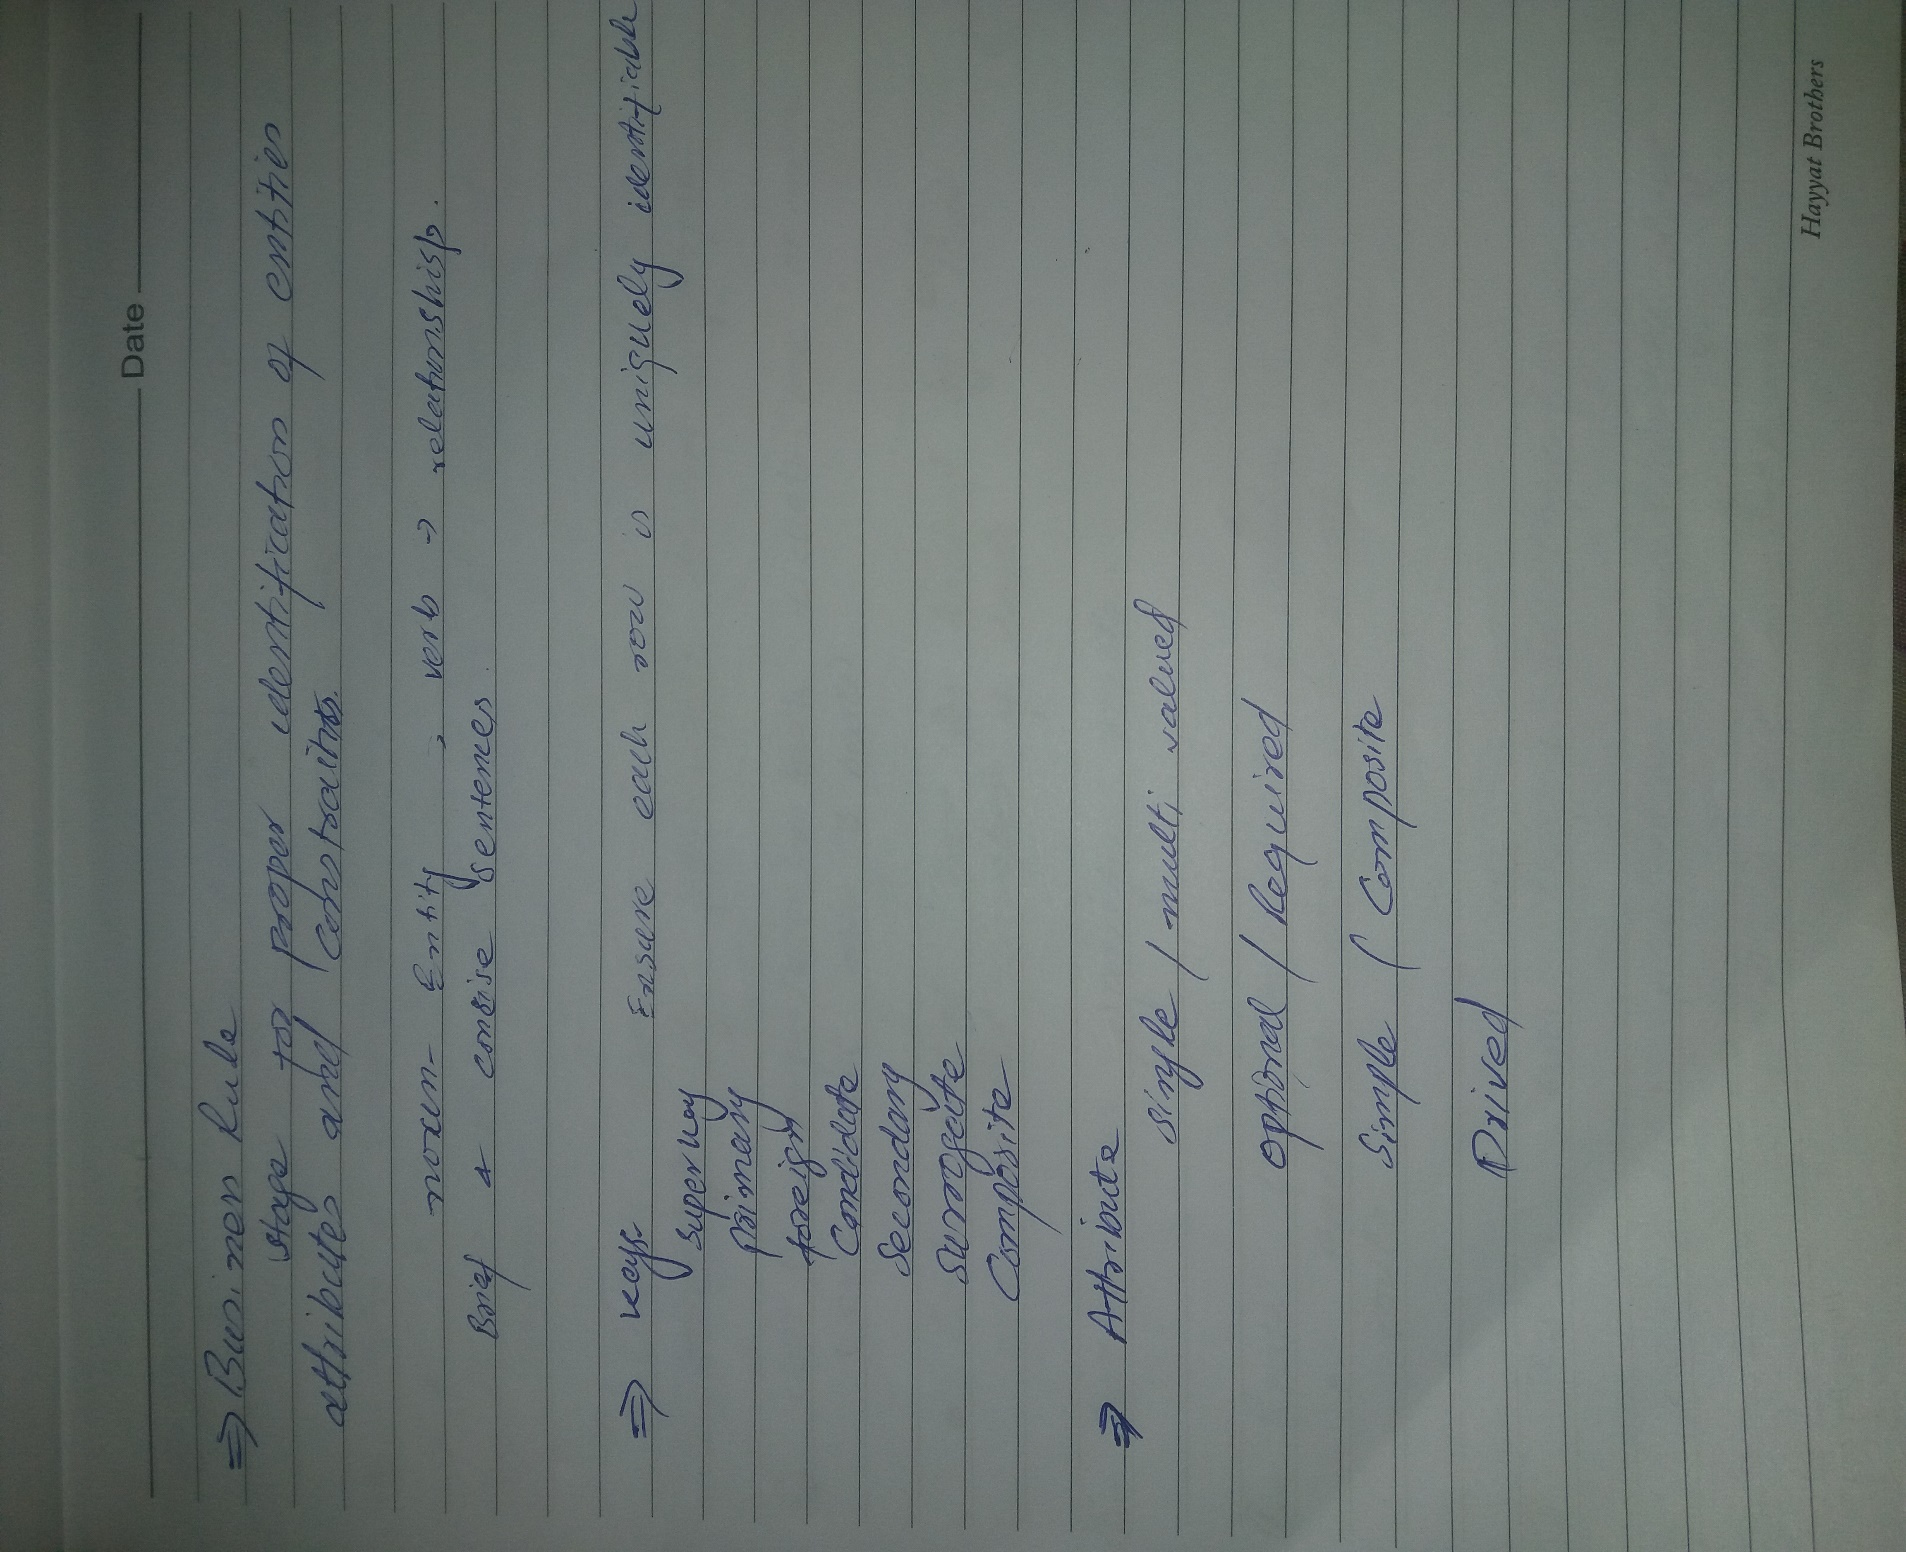 Date
⇒ Business Rule
stage for proper identification of entities
attributes and Constraints.
noun- Entity , verb → relationshisp.
Brief & consise sentences.
⇒ keys. Ensure each row is uniquely identifiable
super key
Primary
foreign
Candidate
Secondary
Surrogate
Composite
⇒ Attribute
single / multi valued
optional / Required
Simple / Composite
Drived
Hayyat Brothers